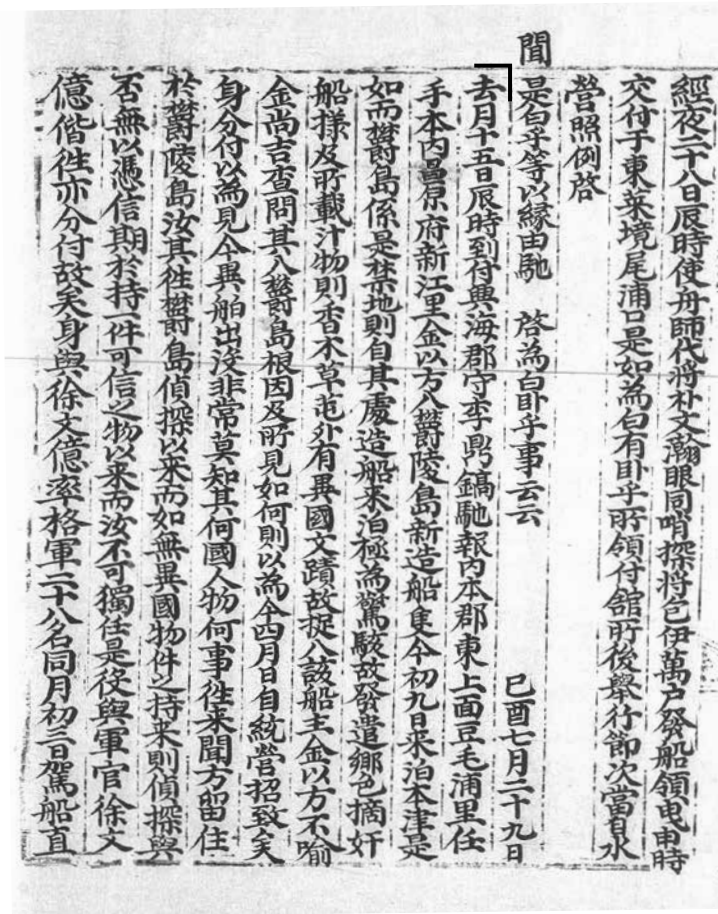 經夜二十八日辰時使舟師代將朴文瀚眼同哨探將包伊萬户發船領曳申時
交付于東萊境尾浦口是如為白有卧乎所領付舘所後舉行節次當自水
營照例啓
聞
是白乎等以緣由馳 啓為白卧乎事云云
己酉七月二十九日
去月十五日辰時到付興海郡守李鼎鎬馳報内本郡東上面豆毛浦里任
手本内昌原府新江里金以方入欝陵島新造船隻今初九日來泊本津是
如而欝島係是禁地則自其處造船來泊極為驚駭故發遣鄉色摘奸
船樣及所載汁物則香木草芚外有異國文蹟故捉入該船主金以方不喻
金尚吉查問其入欝島根因及所見如何則以為今四月日自統營招致矣
身分付以為見今異舶出没非常莫知其何國人物何事徃來聞方留住
於欝陵島汝其徃欝島偵探以來而如無異國物件之持來則偵探與
否無以憑信期於持一件可信之物以來而汝不可獨任是役與軍官徐文
億偕徃亦分付故矣身與徐文億率格軍二十八名同月初三日駕船直